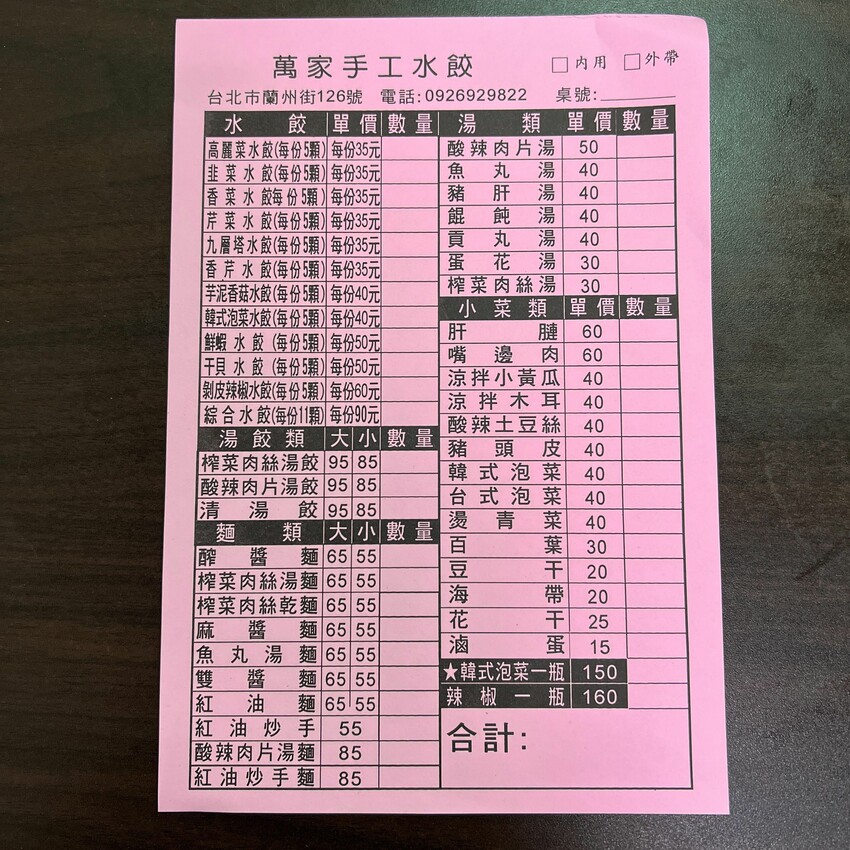 萬家手工水餃
□內用 □外帶
台北市蘭州街126號 電話:0926929822 桌號:
水餃 單價 數量
高麗菜水餃(每份5顆) 每份35元
韭菜水餃(每份5顆) 每份35元
香菜水餃每份5顆) 每份35元
芹菜水餃(每份5顆) 每份35元
九層塔水餃(每份5顆) 每份35元
香芹水餃(每份5顆) 每份35元
芋泥香菇水餃(每份5顆) 每份40元
韓式泡菜水餃(每份5顆) 每份40元
鮮蝦水餃(每份5顆) 每份50元
干貝水餃(每份5顆) 每份50元
剝皮辣椒水餃(每份5顆) 每份60元
綜合水餃(每份11顆) 每份90元
湯餃類 大 小 數量
榨菜肉絲湯餃 95 85
酸辣肉片湯餃 95 85
清湯餃 95 85
麵類 大 小 數量
酢醬麵 65 55
榨菜肉絲湯麵 65 55
榨菜肉絲乾麵 65 55
麻醬麵 65 55
魚丸湯麵 65 55
雙醬麵 65 55
紅油麵 65 55
紅油炒手 55
酸辣肉片湯麵 85
紅油炒手麵 85
湯類 單價 數量
酸辣肉片湯 50
魚丸湯 40
豬肝湯 40
餛飩湯 40
貢丸湯 40
蛋花湯 30
榨菜肉絲湯 30
小菜類 單價 數量
肝腱 60
嘴邊肉 60
涼拌小黃瓜 40
涼拌木耳 40
酸辣土豆絲 40
豬頭皮 40
韓式泡菜 40
台式泡菜 40
燙青菜 40
百葉 30
豆干 20
海帶 20
花干 25
滷蛋 15
★韓式泡菜一瓶 150
辣椒一瓶 160
合計: